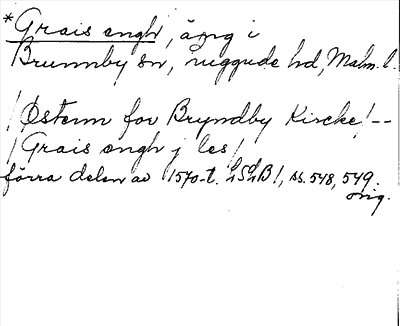 *Grais engh, äng i
Brunnby sn, Luggude hd, Malm. l.
/Østenn for Bryndby Kircke/--
/Grais engh j les/
förra delen av 1570-t. LSLB1, ss. 548, 549.
orig.